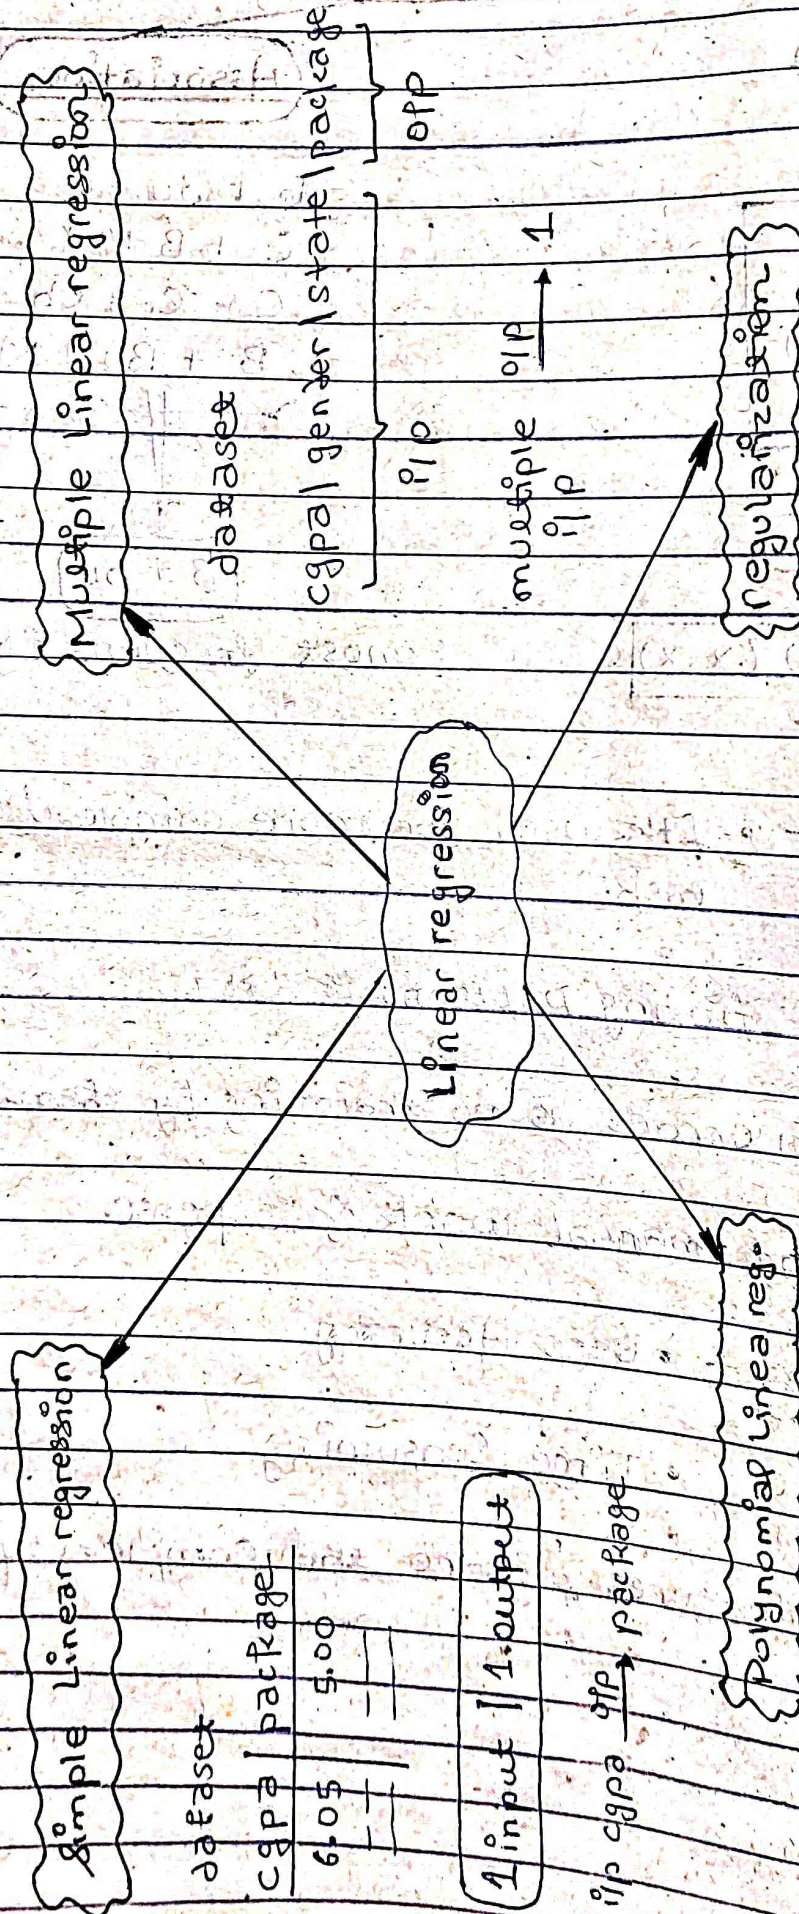 Simple Linear regression
dataset
cgpa | package
6.05 | 5.00
1 input | 1 output
i/p cgpa o/p → package
Multiple Linear regression
dataset
cgpa | gender | state | package
i/p
o/p
multiple o/p → 1
i/p
Linear regression
Polynomial Linear reg.
regularization